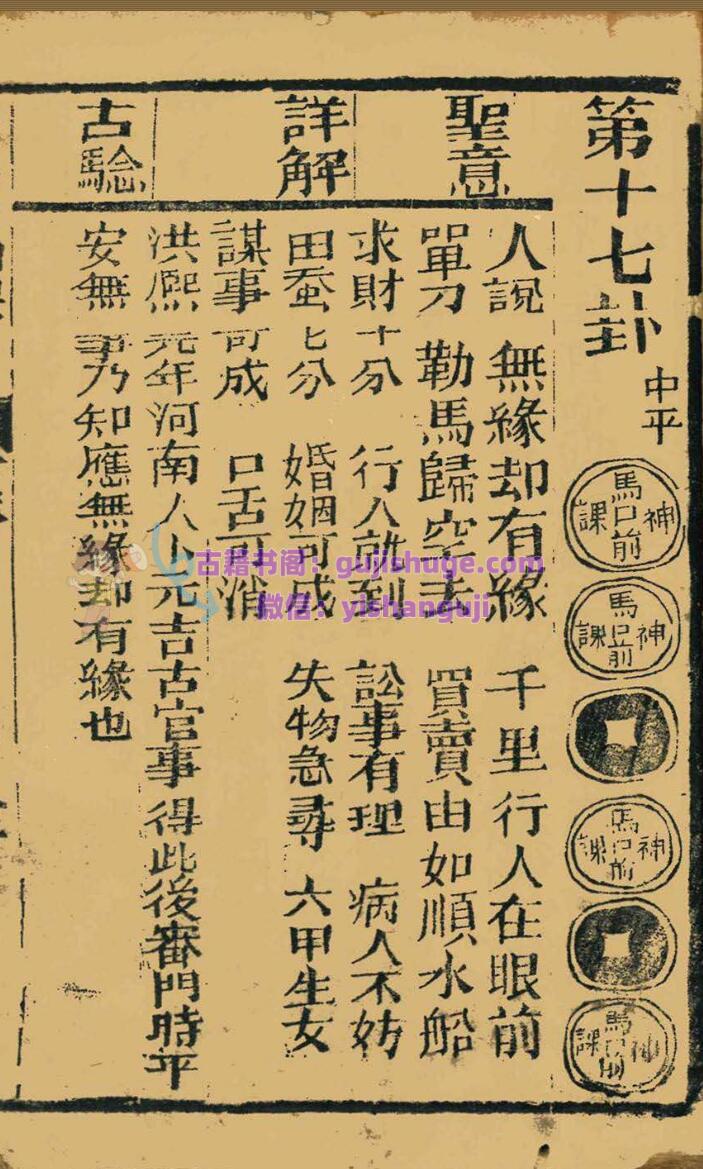 第十七卦 中平
馬口前神課
馬口前神課
馬口前神課
馬口前神課
聖意
人說無緣却有緣 千里行人在眼前
單刀勒馬歸空去 買賣由如順水船
詳解
求財十分 行人就到 訟事有理 病人不妨
田蚕七分 婚姻可成 失物急尋 六甲生女
謀事可成 口舌可消
古驗
洪熈元年河南人卜元吉古官事得此後審門時平
安無事乃知應無緣却有緣也
古籍书阁：gujishuge.com
微信：yishanguji